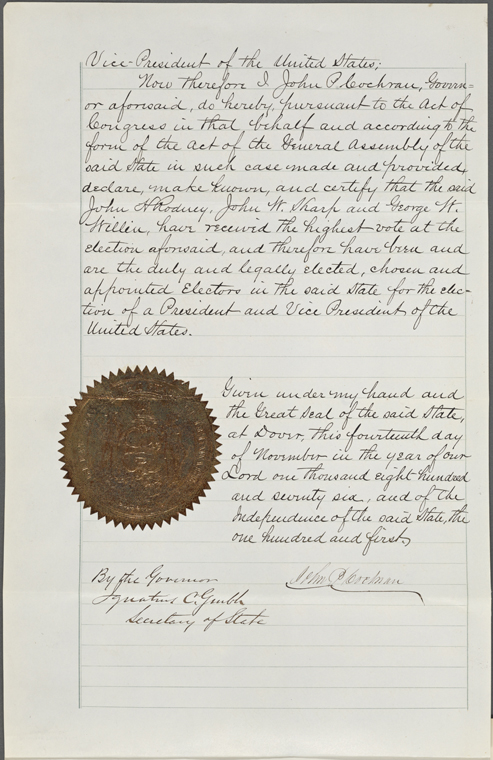 Vice-President of the United States;
Now therefore I, John P. Cochran, Govern=
or aforesaid, do hereby, pursuant to the Act of
Congress in that behalf and according to the
form of the Act of the General Assembly of the
said State in such case made and provided,
declare, make known, and certify that the said
John H Rodney, John W. Sharp and George W.
Willin, have received the highest vote at the
election aforesaid, and therefore have been and
are the duly and legally elected, chosen and
appointed Electors in the said State for the elec-
tion of a President and Vice President of the
United States.
Given under my hand and
the Great Seal of the said State,
at Dover, this fourteenth day
of November in the year of our
Lord one thousand eight hundred
and seventy six, and of the
Independence of the said State, the
one hundred and first,
John P. Cochran
By the Governor
Ignatius C. Grubb
Secretary of State